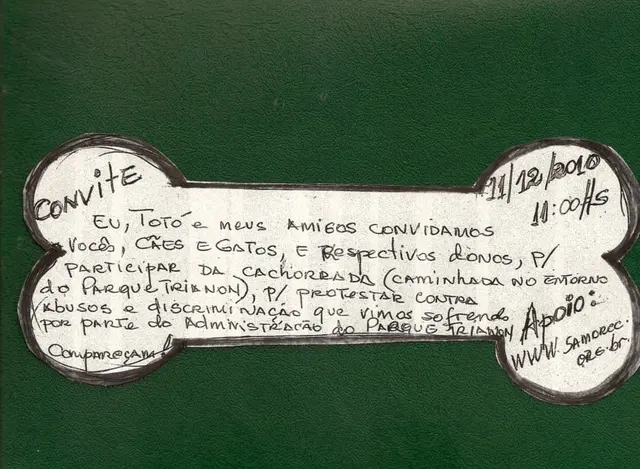 CONVITE
11/12/2010
11:00HS
EU, TOTÓ E MEUS AMIGOS CONVIDAMOS
VOCÊS, CÃES E GATOS, E RESPECTIVOS DONOS, P/
PARTICIPAR DA CACHORRADA (CAMINHADA NO ENTORNO
DO PARQUE TRIANON), P/ PROTESTAR CONTRA
ABUSOS E DISCRIMINAÇÃO QUE VIMOS SOFRENDO
POR PARTE DO ADMINISTRAÇÃO DO PARQUE TRIANON
Compareçam!
Apoio:
WWW.SAMORCC.
ORG.br.